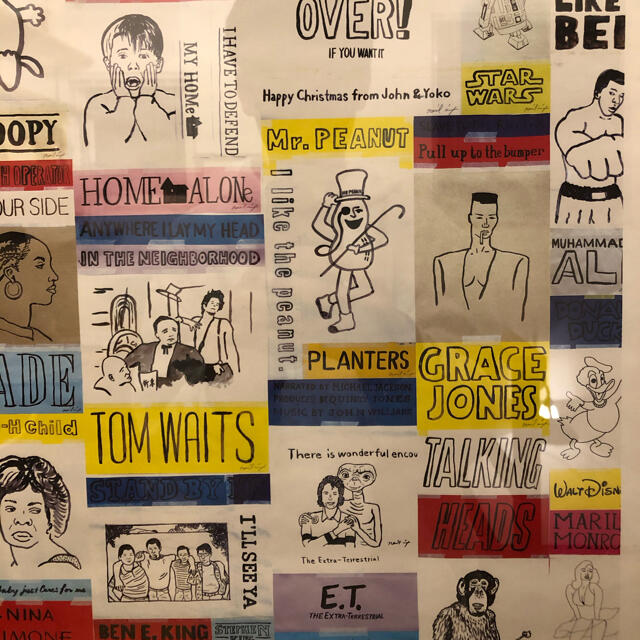 OOPY
H OPERATOR
OUR SIDE
ADE
-H Child
baby just cares for me
NINA
SIMONE
I HAVE TO DEFEND
MY HOME
HOME ALONe
ANYWHERE I LAY MY HEAD
IN THE NEIGHBORHOOD
TOM WAITS
STAND BY
I'LL SEE YA
BEN E. KING
STEPHEN
KING
OVER!
IF YOU WANT IT
Happy Christmas from John & Yoko
Mr. PEANUT
I like the peanut.
PLANTERS
NARRATED BY MICHAEL JACKSON
PRODUCES QUINCY JONES
MUSIC BY JOHN WILLIAMS
There is wonderful encou
The Extra-Terrestrial
E.T.
THE EXTRA-TERRESTRIAL
STAR
WARS
Pull up to the bumper
GRACE
JONES
TALKING
HEADS
LIKE
BE
MUHAMMAD
ALI
DONALD
DUCK
WALT DISN
MARIL
MONRO